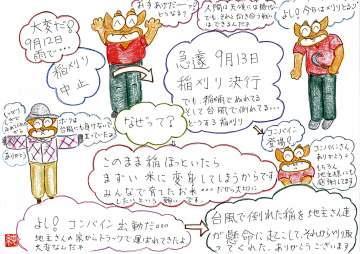 大変だ!
9月12日
雨で…
稲刈り
中止
急遠 9月13日
稲刈り決行
でも稲穂がぬれてる
そして台風で倒れてる…
どうする稲刈り
よし!今日は刈りとるぞ
なぜって?
コンバイン
登場!!
コンバインさん
ありがとう
もちろん
地主様にも
感謝します
このまま稲ほっといたら
まずい米に変身してしまうからです
みんなで育てたお米…だから大切に
よし!コンバイン出動だ…
地主さんの家からトラックで運ばれてきたよ
大変なんだネ
台風で倒れた稲を地主さん達
が懸命に起こして、それから刈り取っ
てくれた、ありがとうございます